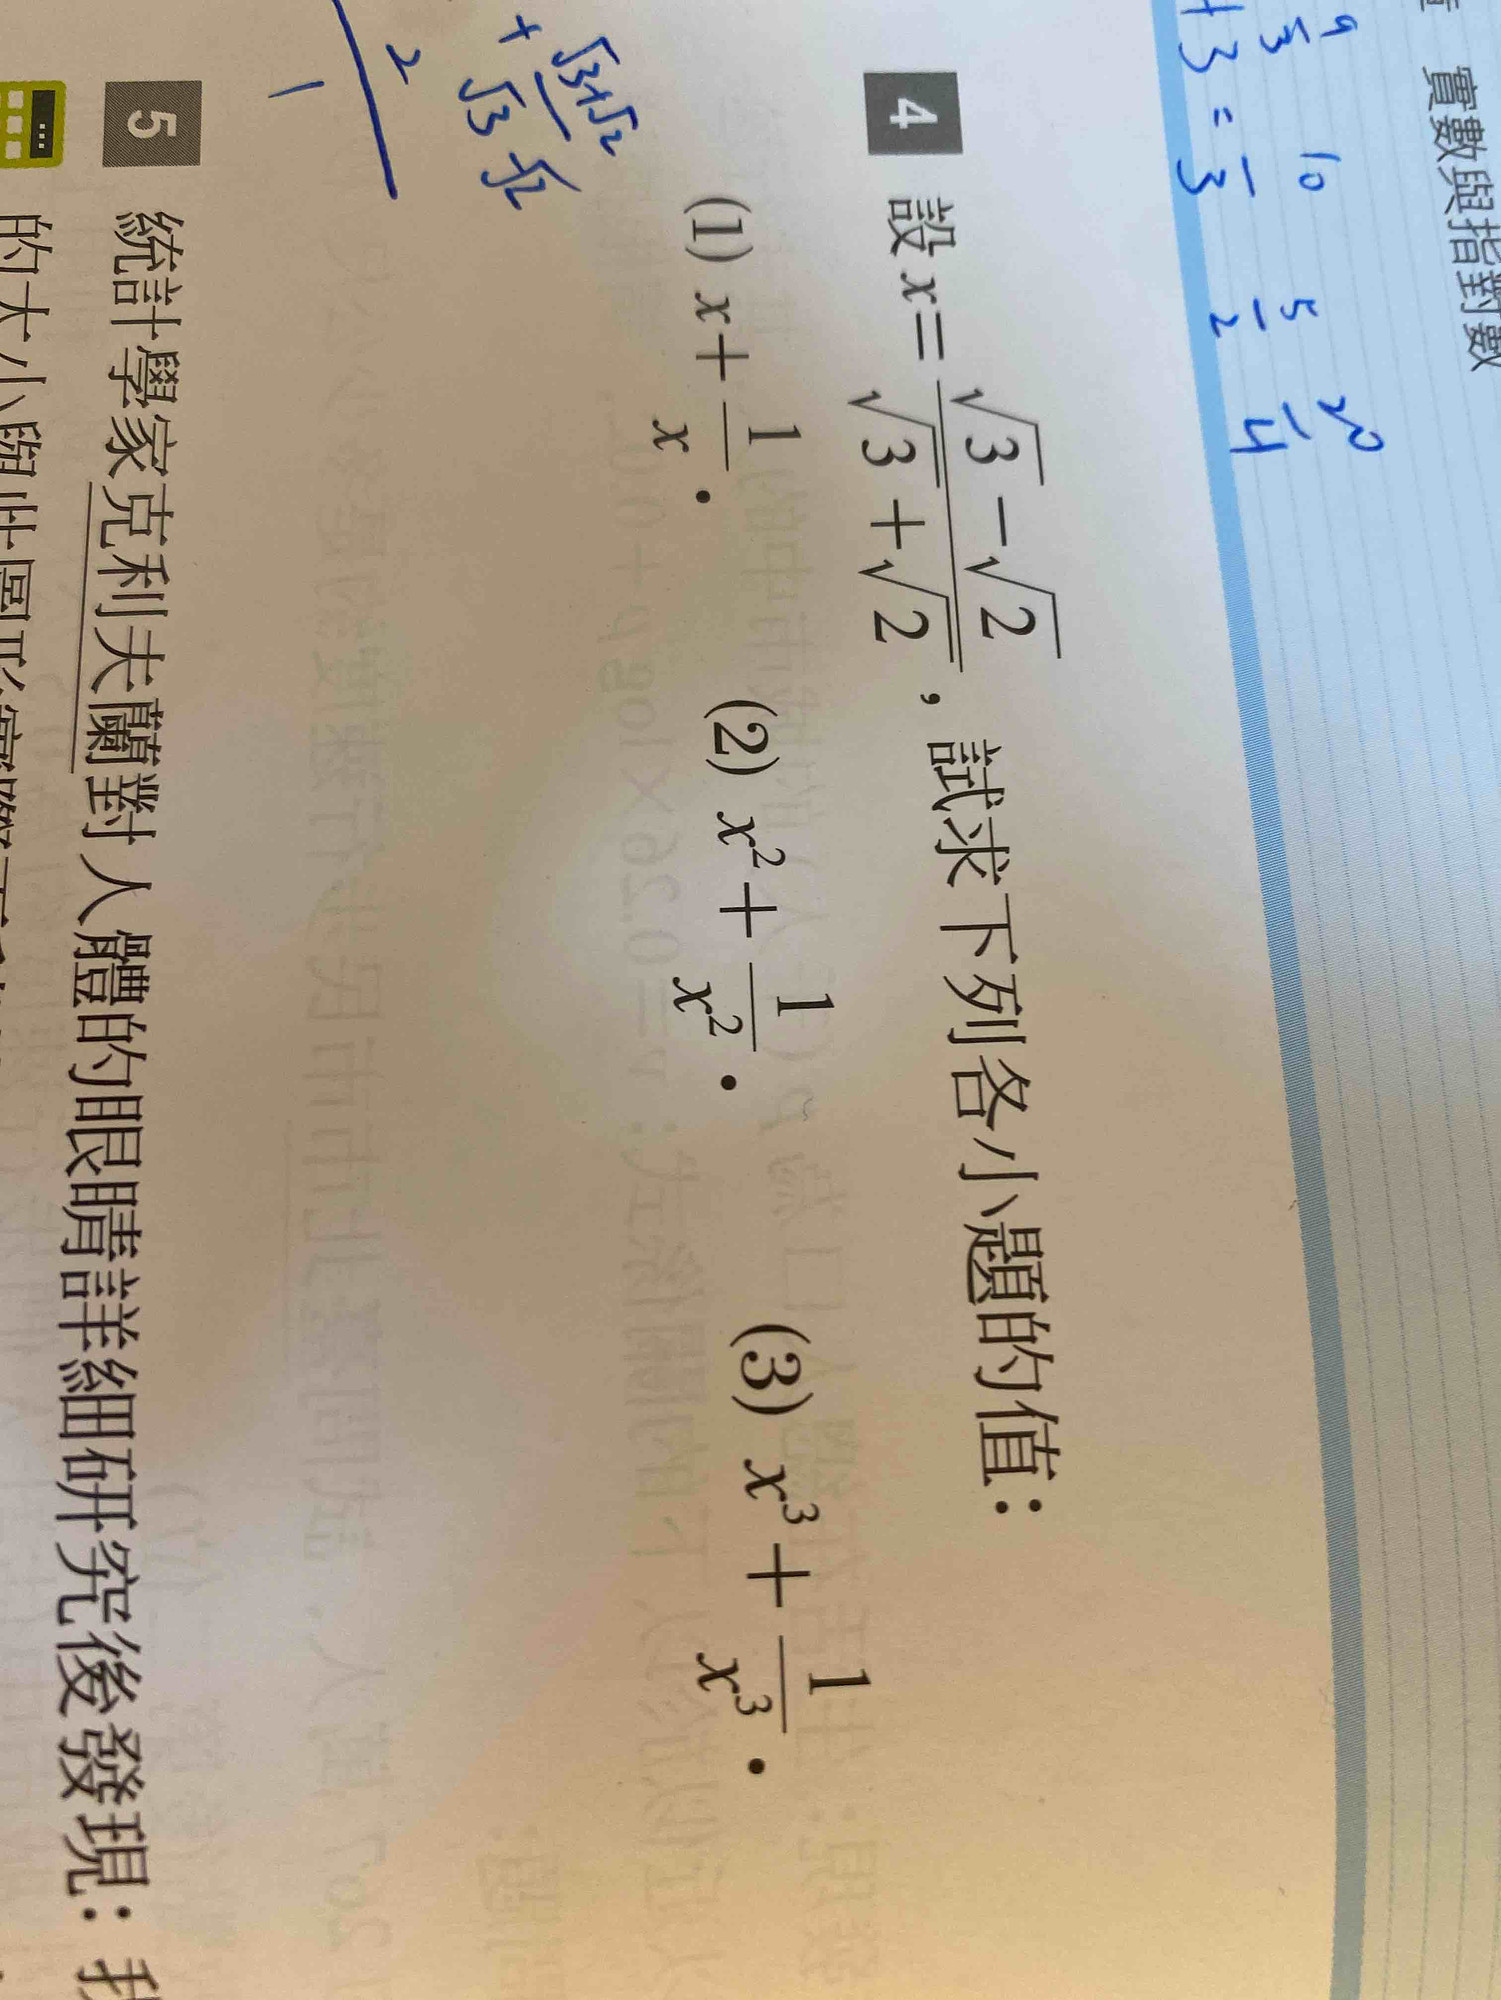 實數與指對數
9 10 5 20
5 2 4
+3 = 3
4 設 x = \frac{\sqrt{3}-\sqrt{2}}{\sqrt{3}+\sqrt{2}}，試求下列各小題的值：
(1) x + \frac{1}{x}． (2) x² + \frac{1}{x²}． (3) x³ + \frac{1}{x³}．
√3+√2
+ √3 -√2
2
1
5 統計學家克利夫蘭對人體的眼睛詳細研究後發現：我
的大小與此圖形實際